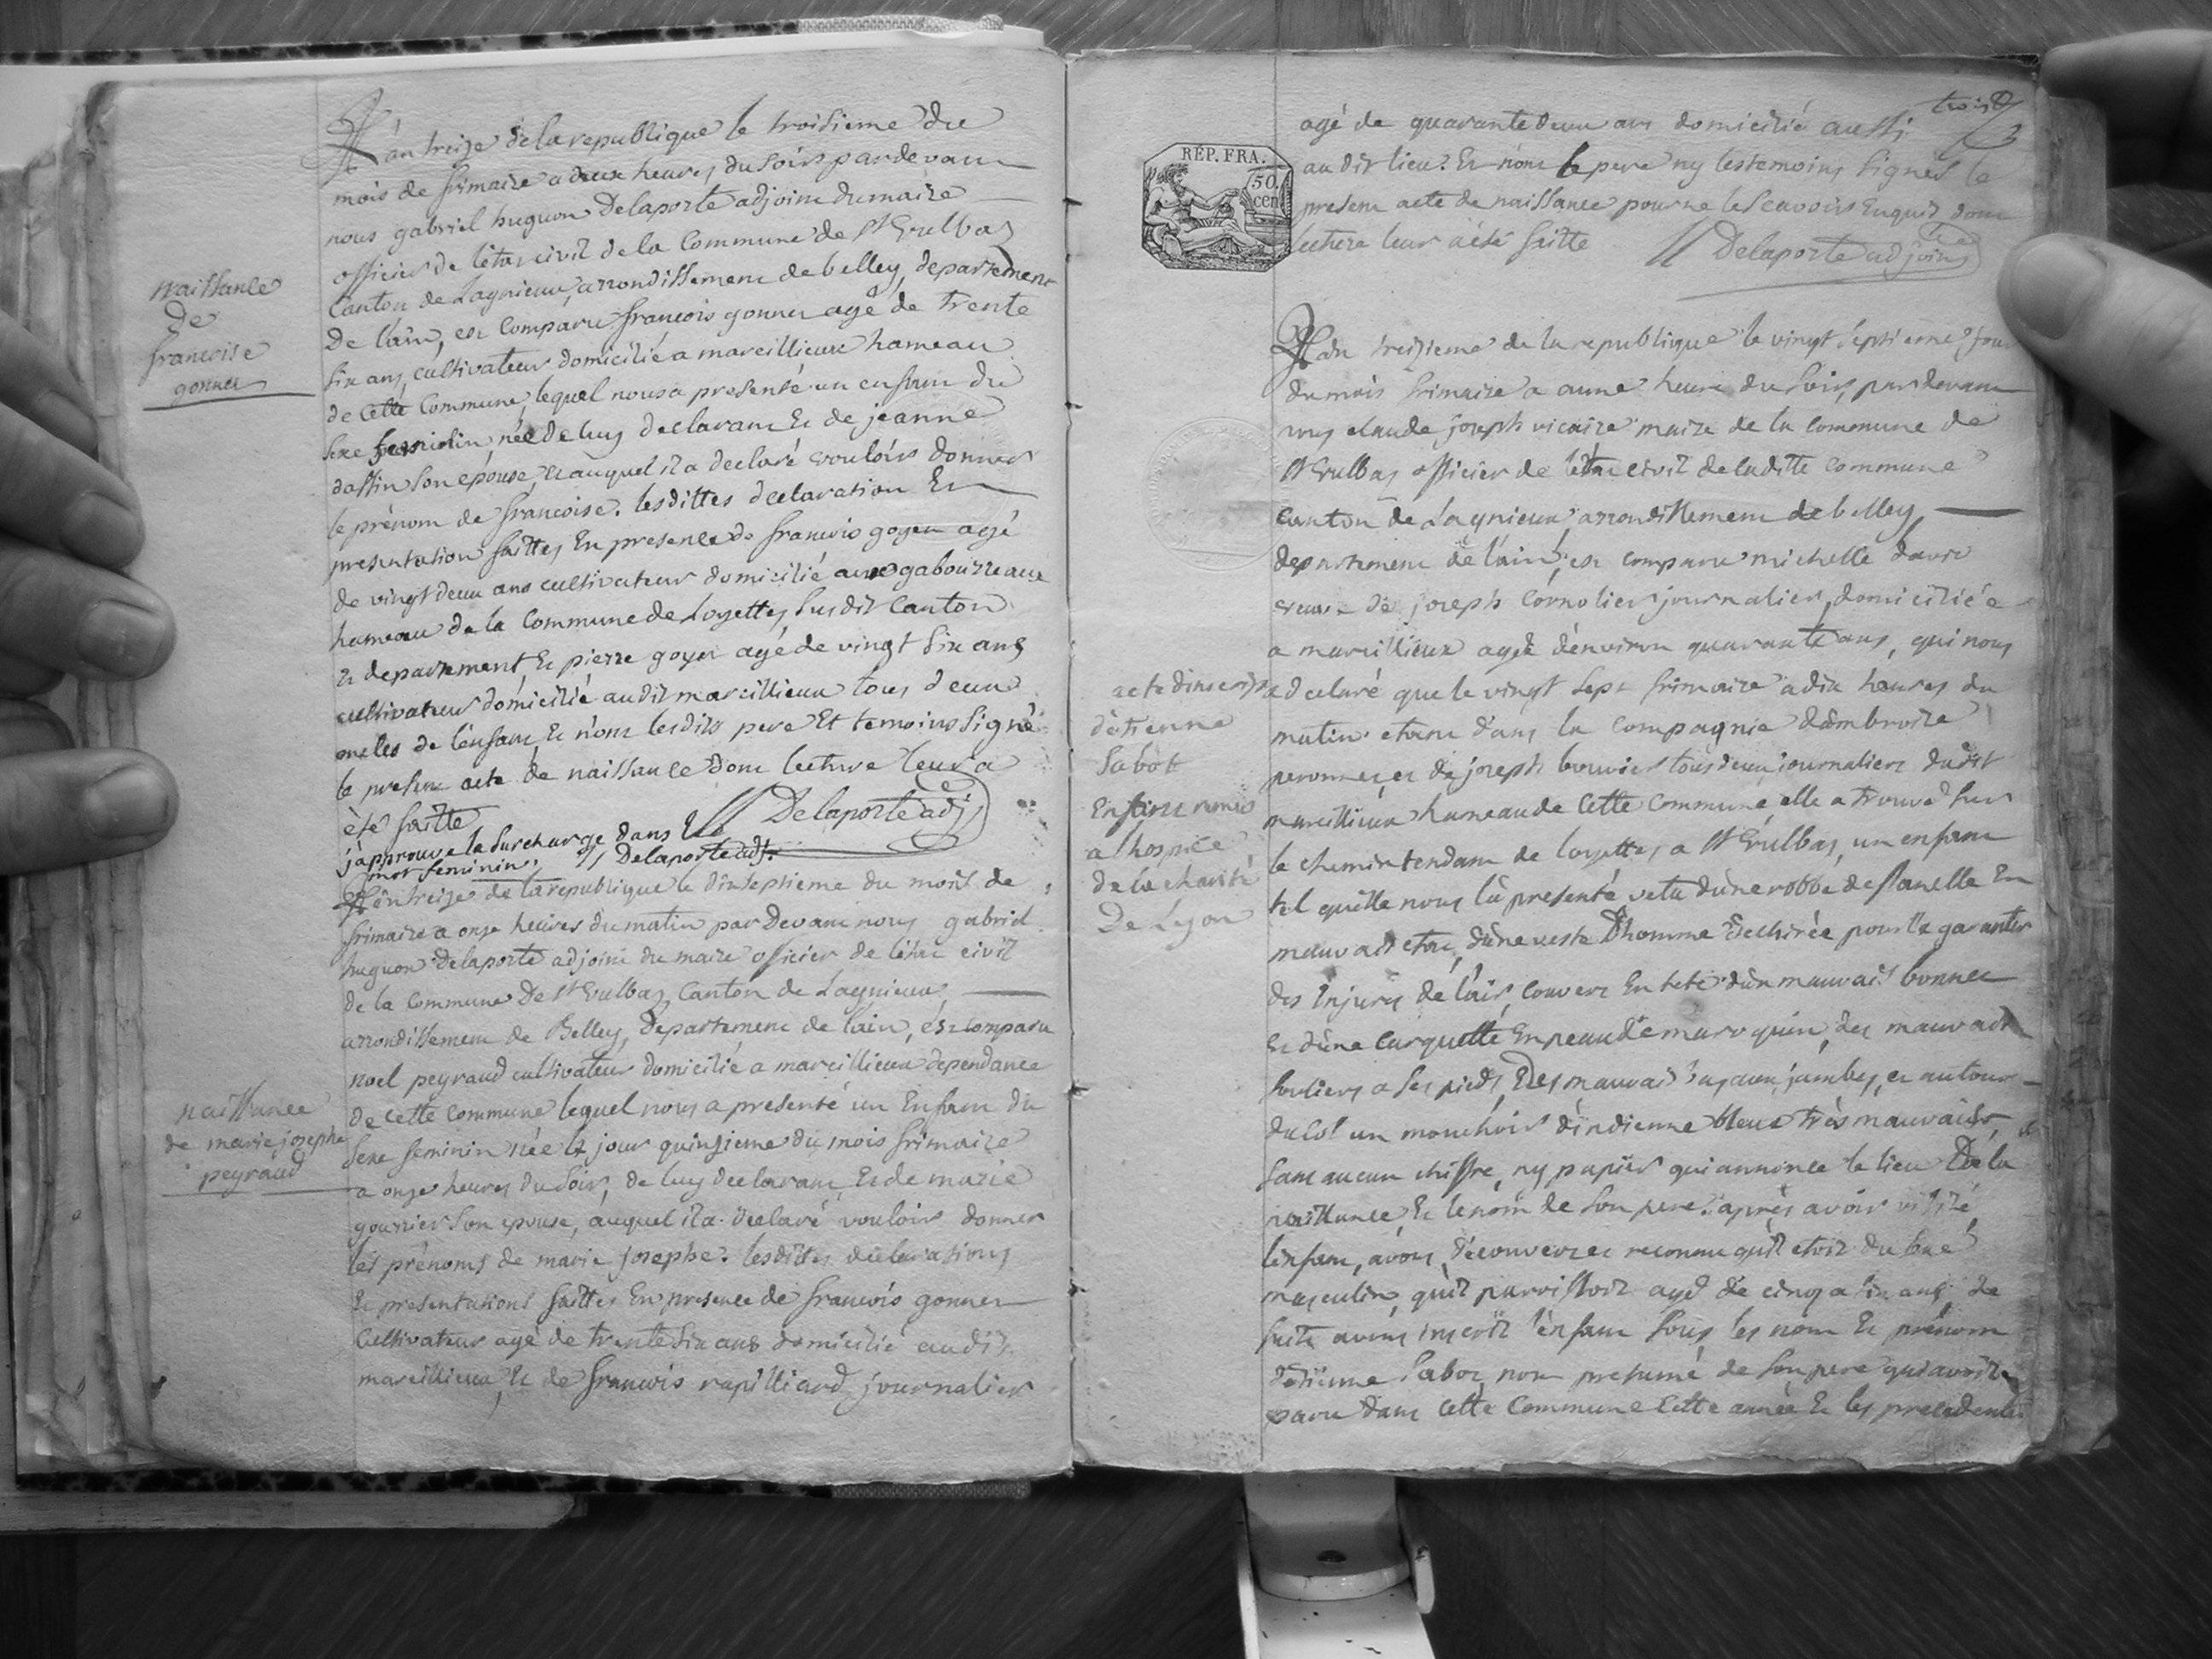 L'an treize de la republique le troisieme du
mois de frimaire a deux heures du soir pardevant
nous gabriel huguon Delaporte adjoint du maire
officier de l'état civil de la Commune de St Vulbas
Canton de Lagnieux, arrondissement de belley, departement
De l'ain, est Comparu francois gonnet agé de trente
six ans, cultivateur domicilié a marcillieux hameau
de Cette Commune, lequel nous a presenté un enfant du
sexe feminin, née de luy declarant Et de jeanne
dassin son epouse, et auquel il a declaré vouloir donner
le prénom de francoise. lesdittes declaration Et
presentation faittes En presence de francois goyet agé
de vingt deux ans cultivateur domicilié aux gabourreaux
hameau de la Commune de Loyettes, susdit Canton
Et departement, Et pierre goyet agé de vingt six ans
cultivateur domicilié audit marcillieux tous deux
oncles de l'enfant, Et n'ont lesdits pere Et temoins signé
le present acte de naissance dont lecture leur a
été faitte
Delaporte adj
j'approuve la surcharge dans le
mot feminin. Delaporte adj.
naissance
de
francoise
gonnet
L'an treize de la republique le dix septieme du mois de
frimaire a onze heures du matin par Devant nous gabriel
huguon Delaporte adjoint du maire officier de l'état civil
de la Commune De St Vulbas, Canton de Lagnieux,
arrondissement de Belley, Departement de l'ain, est comparu
noel peyraud cultivateur domicilié a marcillieux dependance
de cette Commune lequel nous a presenté un Enfant du
sexe feminin née le jour quinzieme du mois frimaire
a onze heures du soir, de luy declarant, Et de marie
gourrier son epouse, auquel il a declaré vouloir donner
les prénoms de marie josephe. lesdittes declarations
Et presentations faittes En presence de francois gonnet
Cultivateur agé de trente six ans domicilié audit
marcillieux, Et de francois rapilliard journalier
naissance
de marie josephe
peyraud
trois
agé de quarante deux ans domicilié aussi
audit lieu. Et n'ont le pere ny les temoins signés le
present acte de naissance pour ne le scavoir Enquis dont
lecture leur a été faitte
Delaporte adjoint
RÉP. FRA.
50
cen
L'an treizieme de la republique le vingt septieme jour
du mois frimaire a une heure du soir, pardevant
nous claude joseph vicaire maire de la commune de
St Vulbas officier de l'état civil de laditte commune
Canton de Lagnieux arrondissement de belley
departement de l'ain, est comparu michelle
veuve de joseph Cornolier journalier, domiciliée
a marcillieux agée d'environ quarante ans, qui nous
a declaré que le vingt sept frimaire a dix heures du
matin etant dans la compagnie d'ambroise
peronnet, et de joseph bouvier tous deux journaliers dudit
marcillieux hameau de Cette Commune, elle a trouvé sur
le chemin tendant de loyettes a St Vulbas, un enfant
tel qu'elle nous l'a presenté vetu d'une robbe de flanelle En
mauvais etat, d'une veste D'homme déchirée pour le garantir
des Injures de l'air, couvert En tete d'un mauvais bonnet
Et d'une Casquette En peau de maroquin, des mauvais
souliers a ses pieds, Des mauvais bas aux jambes, et autour
du Col un mouchoir d'indienne bleue très mauvais,
sans aucun chiffre, ny papier qui annonce le lieu De la
naissance, Et le nom de son pere. après avoir visité
l'enfant, avons découvert et reconnu qu'il etoit du sexe
masculin, qu'il paroissoit agé de cinq a six ans, de
suite avons inscrit l'enfant sous les nom Et prénom
d'étienne Sabot, nom presumé de son pere qui avoit
paru dans Cette Commune Cette année Et les precedentes
acte d'inscription
d'étienne
Sabot
Enfant remis
a l'hospice
de la charité
De Lyon